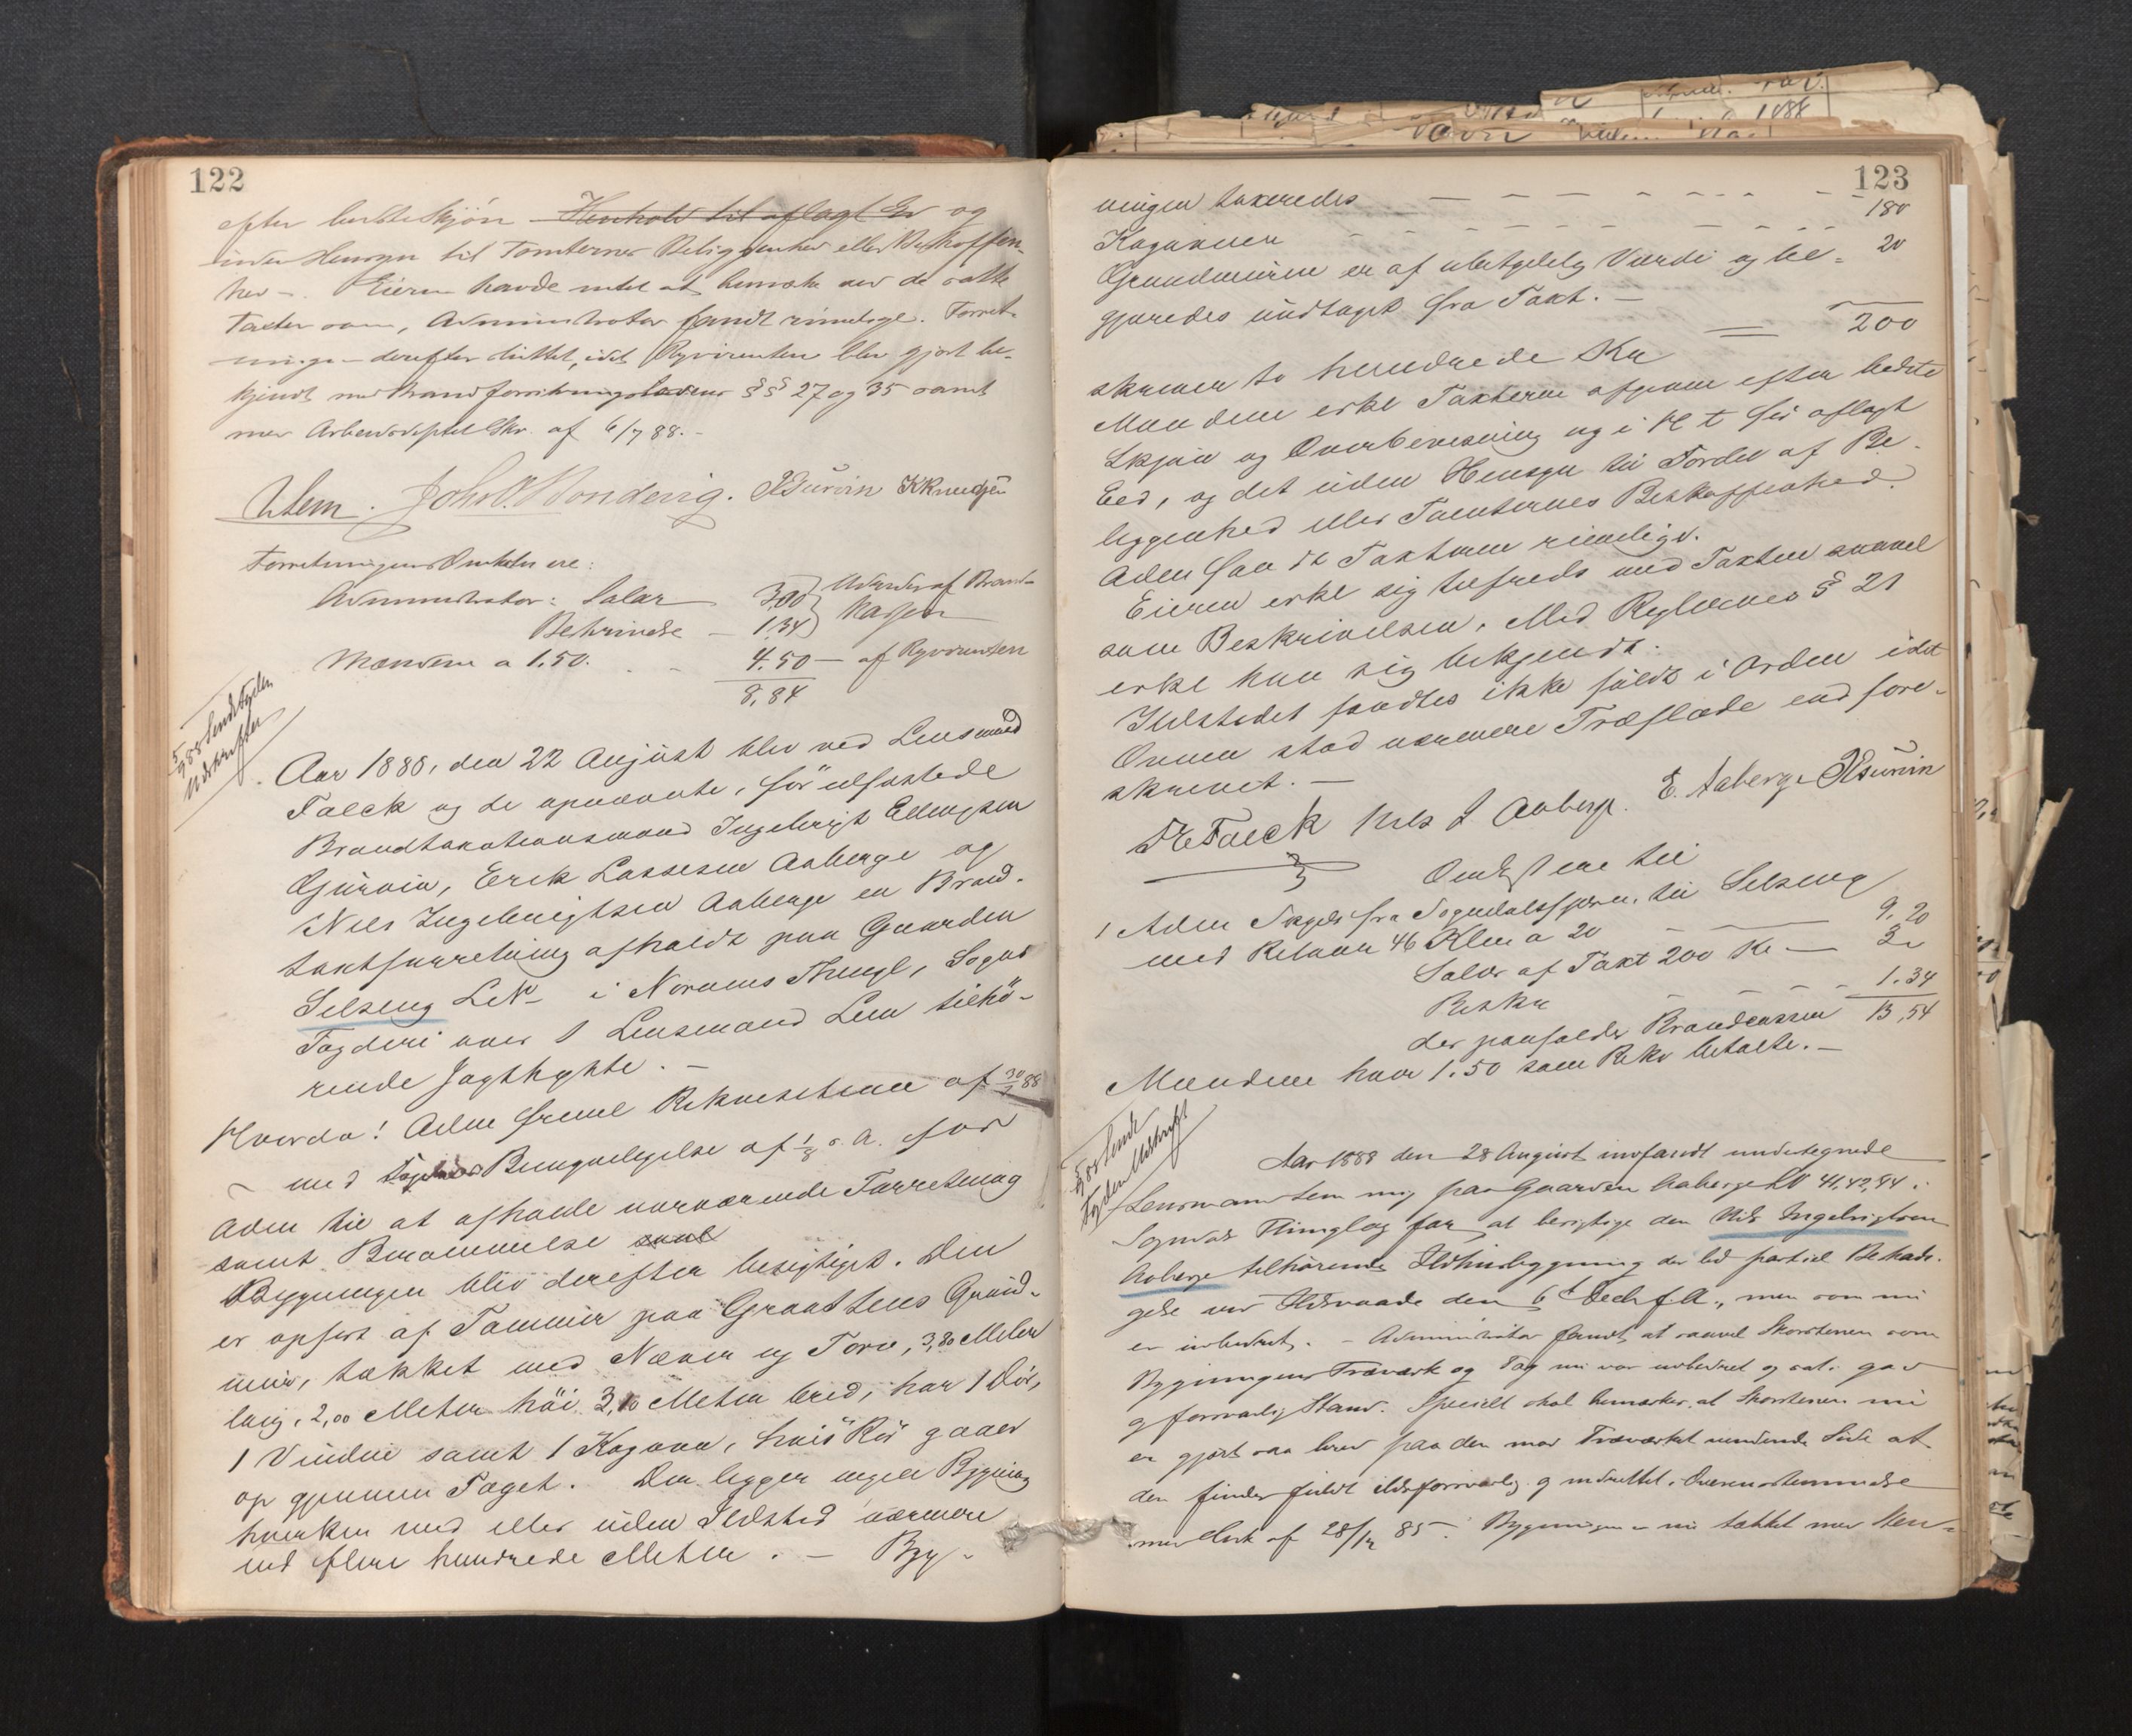 122
efter bedste Skjøn Henhold til aflagt Ed og
uden Hensyn til Tomternes Beliggenhed eller Beskaffen-
hed –. Eieren havde intet at bemærke ved de satte
Taxter som, Administrator fandt rimelige. Forret-
ningen derefter sluttet, idet Rqvirenten blev gjort be-
kjendt med Brandforsikringslovens §§ 27 og 35 samt
med Arbeidsdeptets Skr. af 6/7 88. –
Lem. Joh. O. Nondevig. Gurvin K Knudsen
Forretningens Omkostn ere:
Administrator: Salær 3,00 Udredes af Brand-
Betrinelse – 1,34 kassen
Mændene a 1.50. 4.50 – af Rqvirenten
8,84
5/9 88 Sendt Fogden
Udskriften
Aar 1888, den 22 August blev ved Lensmand
Falck og de opnævnte, før edfæstede
Brandtaxationsmænd Ingebrigt Ellingsen
Gurvin, Erik Lassesen Aaberge og
Nils Ingebrigtsen Aaberge en Brand-
taxtforretning afholdt paa Gaarden
Selseng LNo i Norums Thingl, Sogns
Fogderi over 1 Lensmand Lem tilhø-
rende Jagthytte. –
Hvorda! Adm freml Rekvisitionen af 30/7 88
– med Fogdens Bemyndigelse af 1/8 s. A. for
Adm til at afholde nærværende Forretning
samt Berammelse saml
Bygningen blev derefter besigtiget. Den
er opført af Tømmer paa Graastens Grund-
mur, tækket med Næver og Torv, 3,80 Meter
lang, 2,00 Meter høi 3,10 Meter bred, har 1 Dør,
1 Vindue samt 1 Kogeovn, hvis Rør gaaer
op gjennem Taget. Der ligger ingen Bygning
hverken med eller uden Ildsted nærmere
end flere hundrede Meter. – Byg-
123
ningen taxeredes – – – – – – – – 180
Kogeovnen – – – – – – – – 20
Grundmuren er af ubetydelig Værdi og be-
gjæredes undtaget fra Taxt. –
200
skriver to hundrede Kr
Mændene erkl Taxterne afgivne efter bedste
Skjøn og Overbevisning og i H t før aflagt
Eed, og det uden Hensyn til Fordel af Be-
liggenhed eller Tomternes Beskaffenhed.
Adm fan dt Taxterne rimelige.
Eieren erkl sig tilfreds med Taxten saavel
som Beskrivelsen. Med Reglernes § 21
erkl han sig bekjendt.
Ildstedet fandtes ikke fuldt i Orden idet
Ovnen stod nærmere Træflade end fore-
skrevet. –
Falck Nils J Aaberge. E. Aaberge Gurvin
Omkst ere til
1 Adm Skyds fra Sogndalsfjøren til Selseng
med Retour 46 Klm a 20 9,20
Salær af Taxt 200 Kr – 3 „
Beskr – – – – 1.34
der paafalder Brandcassen 13,54
Mændene have 1.50 som Rekv betalte. –
5/9 88 Sendt
Fogden Udskrift
Aar 1888 den 28 August indfandt undertegnede
Lensmand Lem mig paa Gaarden Aaberge LN 41, 42, 44 i
Sogndals Thinglag for at besigtige den Nils Ingebrigtsen
Aaberge tilhørende Ildhusbygning der led partiel Beskadi-
gelse ved Ildsvaade den 6te Decb f. A., men som nu
er udbedret. – Administrator fandt, at saavel Skorstenen som
Bygningens Træværk og Tag nu var udbedret og sat i god
og forsvarlig Stand. Specielt skal bemærkes, at Skorstenen nu
er gjort saa bred paa den mod Træværket vendende Side at
den findes fuldt ildsforsvarlig og indrettet i Overensstemmelse
med Lov af 28/12 85. Bygningen er nu tækket med Sten-